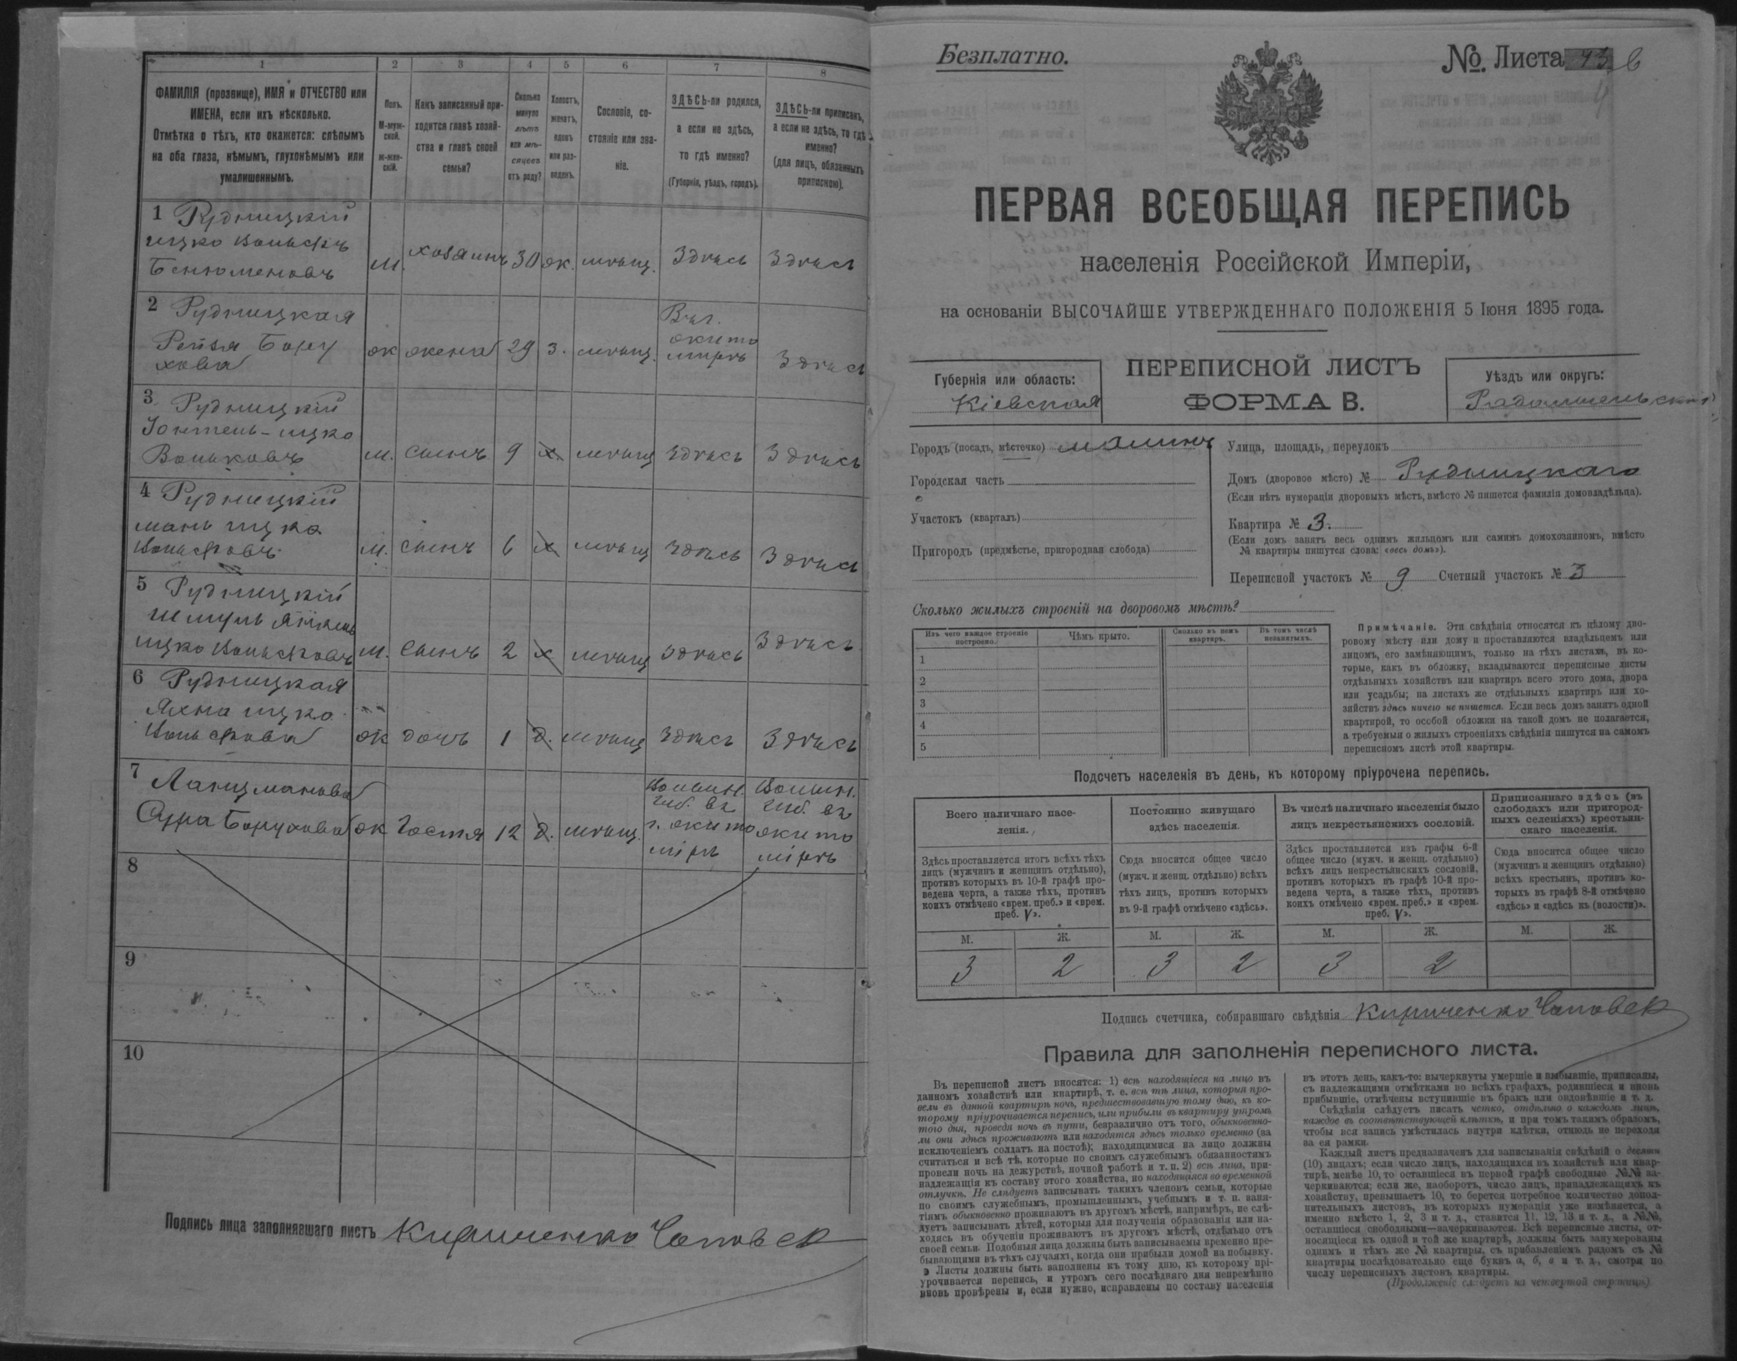 1 2 3 4 5 6 7 8
ФАМИЛІЯ (прозвище), ИМЯ и ОТЧЕСТВО или
ИМЕНА, если ихъ нѣсколько.
Отмѣтка о тѣхъ, кто окажется: слѣпымъ
на оба глаза, нѣмымъ, глухонѣмымъ или
умалишеннымъ.
Полъ.
М-муж-
ской.
ж-жен-
скій.
Какъ записанный при-
ходится главѣ хозяй-
ства и главѣ своей
семьи?
Сколько
минуло
лѣтъ
или мѣ-
сяцевъ
отъ роду?
Холостъ,
женатъ,
вдовъ
или раз-
веденъ.
Сословіе, со-
стояніе или зва-
ніе.
ЗДѢСЬ-ли родился,
а если не здѣсь,
то гдѣ именно?
(Губернія, уѣздъ, городъ).
ЗДѢСЬ-ли приписанъ,
а если не здѣсь, то гдѣ
именно?
(для лицъ, обязанныхъ
припискою).
1 Рудницкій
Ицко Вольфъ
Бенюменовъ
м. хозяинъ 30 ж. мѣщ. Здѣсь Здѣсь
2 Рудницкая
Рейзя Бору
хова
ж жена 29 з. мѣщ.
Жито
мірѣ
Здѣсь
3 Рудницкій
Ицко
Вольковъ
м. сынъ 9 х мѣщ Здѣсь Здѣсь
4 Рудницкій
Ицко
Вольфовъ
м. сынъ 6 х мѣщ Здѣсь Здѣсь
5 Рудницкій
Шмуль
Ицко Вольфовъ
м. сынъ 2 х мѣщ Здѣсь Здѣсь
6 Рудницкая
Ицко
Вольфова
ж дочь 1 д. мѣщ Здѣсь Здѣсь
7 Ланцманова
Сура Борухова
ж гостя 12 д. мѣщ.
Волын.
губ. въ
г. Жито
мірѣ
Волын.
губ. въ
Жито
мірѣ
8
9
10
Подпись лица заполнявшаго листъ Кириченко Чоповск
Безплатно.
№. Листа 43 в
ПЕРВАЯ ВСЕОБЩАЯ ПЕРЕПИСЬ
населенія Россійской Имперіи,
на основаніи ВЫСОЧАЙШЕ УТВЕРЖДЕННАГО ПОЛОЖЕНІЯ 5 Іюня 1895 года.
Губернія или область:
Кіевская
ПЕРЕПИСНОЙ ЛИСТЪ
ФОРМА В.
Уѣздъ или округъ:
Радомысльскій
Городъ (посадъ, мѣстечко) Малинъ
Городская часть
Участокъ (кварталъ)
Пригородъ (предмѣстье, пригородная слобода)
Улица, площадь, переулокъ
Домъ (дворовое мѣсто) № Рудницкаго
(Если нѣтъ нумераціи дворовыхъ мѣстъ, вмѣсто № пишется фамилія домовладѣльца).
Квартира № 3.
(Если домъ занятъ весь однимъ жильцомъ или самимъ домохозяиномъ, вмѣсто
№ квартиры пишутся слова: «весь домъ»).
Переписной участокъ № 9 Счетный участокъ № 3
Сколько жилыхъ строеній на дворовомъ мѣстѣ?
Изъ чего каждое строеніе
построено.
Чѣмъ крыто.
Сколько въ немъ
квартиръ.
Въ томъ числѣ
незанятыхъ.
1
2
3
4
5
Примѣчаніе. Эти свѣдѣнія относятся къ цѣлому дво-
ровому мѣсту или дому и проставляются владѣльцемъ или
лицомъ, его замѣняющимъ, только на тѣхъ листахъ, въ ко-
торые, какъ въ обложку, вкладываются переписные листы
отдѣльныхъ хозяйствъ или квартиръ всего этого дома, двора
или усадьбы; на листахъ же отдѣльныхъ квартиръ или хо-
зяйствъ здѣсь ничего не пишется. Если весь домъ занятъ одной
квартирой, то особой обложки на такой домъ не полагается,
а требуемыя о жилыхъ строеніяхъ свѣдѣнія пишутся на самомъ
переписномъ листѣ этой квартиры.
Подсчетъ населенія въ день, къ которому пріурочена перепись.
Всего наличнаго насе-
ленія.
Постоянно живущаго
здѣсь населенія.
Въ числѣ наличнаго населенія было
лицъ некрестьянскихъ сословій.
Приписаннаго здѣсь (въ
слободахъ или пригород-
ныхъ селеніяхъ) крестьян-
скаго населенія.
Здѣсь проставляется итогъ всѣхъ тѣхъ
лицъ (мужчинъ и женщинъ отдѣльно),
противъ которыхъ въ 10-й графѣ про-
ведена черта, а также тѣхъ, противъ
коихъ отмѣчено «врем. преб.» и «врем.
преб. V».
Сюда вносится общее число
(мужч. и женщ. отдѣльно) всѣхъ
тѣхъ лицъ, противъ которыхъ
въ 9-й графѣ отмѣчено «здѣсь».
Здѣсь проставляется изъ графы 6-й
общее число (мужч. и женщ. отдѣльно)
всѣхъ лицъ некрестьянскихъ сословій,
противъ которыхъ въ графѣ 10-й про-
ведена черта, а также тѣхъ, противъ
коихъ отмѣчено «врем. преб.» и «врем.
преб. V».
Сюда вносится общее число
(мужчинъ и женщинъ отдѣльно)
всѣхъ крестьянъ, противъ ко-
торыхъ въ графѣ 8-й отмѣчено
«здѣсь» и «здѣсь къ (волости)».
М. Ж. М. Ж. М. Ж. М. Ж.
3 2 3 2 3 2
Подпись счетчика, собиравшаго свѣдѣнія Кириченко Чоповск
Правила для заполненія переписного листа.
Въ переписной листъ вносятся: 1) всѣ находящіеся на лицо въ
данномъ хозяйствѣ или квартирѣ, т. е. всѣ тѣ лица, которыя про-
вели въ данной квартирѣ ночь, предшествовавшую тому дню, къ ко-
торому пріурочивается перепись, или прибыли въ квартиру утромъ
того дня, проведя ночь въ пути, безразлично отъ того, обыкновенно-
ли они здѣсь проживаютъ или находятся здѣсь только временно (за
исключеніемъ солдатъ на постоѣ); находящимися на лицо должны
считаться и всѣ тѣ, которые по своимъ служебнымъ обязанностямъ
провели ночь на дежурствѣ, ночной работѣ и т. п. 2) всѣ лица, при-
надлежащія къ составу этого хозяйства, но находящіяся во временной
отлучкѣ. Не слѣдуетъ записывать такихъ членовъ семьи, которые
по своимъ служебнымъ, промышленнымъ, учебнымъ и т. п. заня-
тіямъ обыкновенно проживаютъ въ другомъ мѣстѣ, напримѣръ, не слѣ-
дуетъ записывать дѣтей, которыя для полученія образованія или на-
ходясь въ обученіи проживаютъ въ другомъ мѣстѣ, отдѣльно отъ
своей семьи. Подобныя лица должны быть записываемы временно пре-
бывающими въ тѣхъ случаяхъ, когда они прибыли домой на побывку.
Листы должны быть заполнены къ тому дню, къ которому прі-
урочивается перепись, и утромъ сего послѣдняго дня непремѣнно
вновь провѣрены и, если нужно, исправлены по составу населенія
въ этотъ день, какъ-то: вычеркнуты умершіе и выбывшіе, приписаны,
съ надлежащими отмѣтками во всѣхъ графахъ, родившіеся и вновь
прибывшіе, отмѣчены вступившіе въ бракъ или овдовѣвшіе и т. д.
Свѣдѣнія слѣдуетъ писать четко, отдѣльно о каждомъ лицѣ,
каждое въ соотвѣтствующей клѣткѣ, и при томъ такимъ образомъ,
чтобы вся запись умѣстилась внутри клѣтки, отнюдь не переходя
за ея рамки.
Каждый листъ предназначенъ для записыванія свѣдѣній о десяти
(10) лицахъ; если число лицъ, находящихся въ хозяйствѣ или квар-
тирѣ, менѣе 10, то оставшіеся въ первой графѣ свободные №№ за-
черкиваются; если же, наоборотъ, число лицъ, принадлежащихъ къ
хозяйству, превышаетъ 10, то берется потребное количество допол-
нительныхъ листовъ, въ которыхъ нумерація уже измѣняется, а
именно вмѣсто 1, 2, 3 и т. д., ставится 11, 12, 13 и т. д., а №№,
оставшіеся свободными—зачеркиваются. Всѣ переписные листы, от-
носящіеся къ одной и той же квартирѣ, должны быть занумерованы
однимъ и тѣмъ же № квартиры, съ прибавленіемъ рядомъ съ №
квартиры послѣдовательно еще буквъ а, б, в и т. д., смотря по
числу переписныхъ листовъ квартиры.
(Продолженіе слѣдуетъ на четвертой страницѣ)